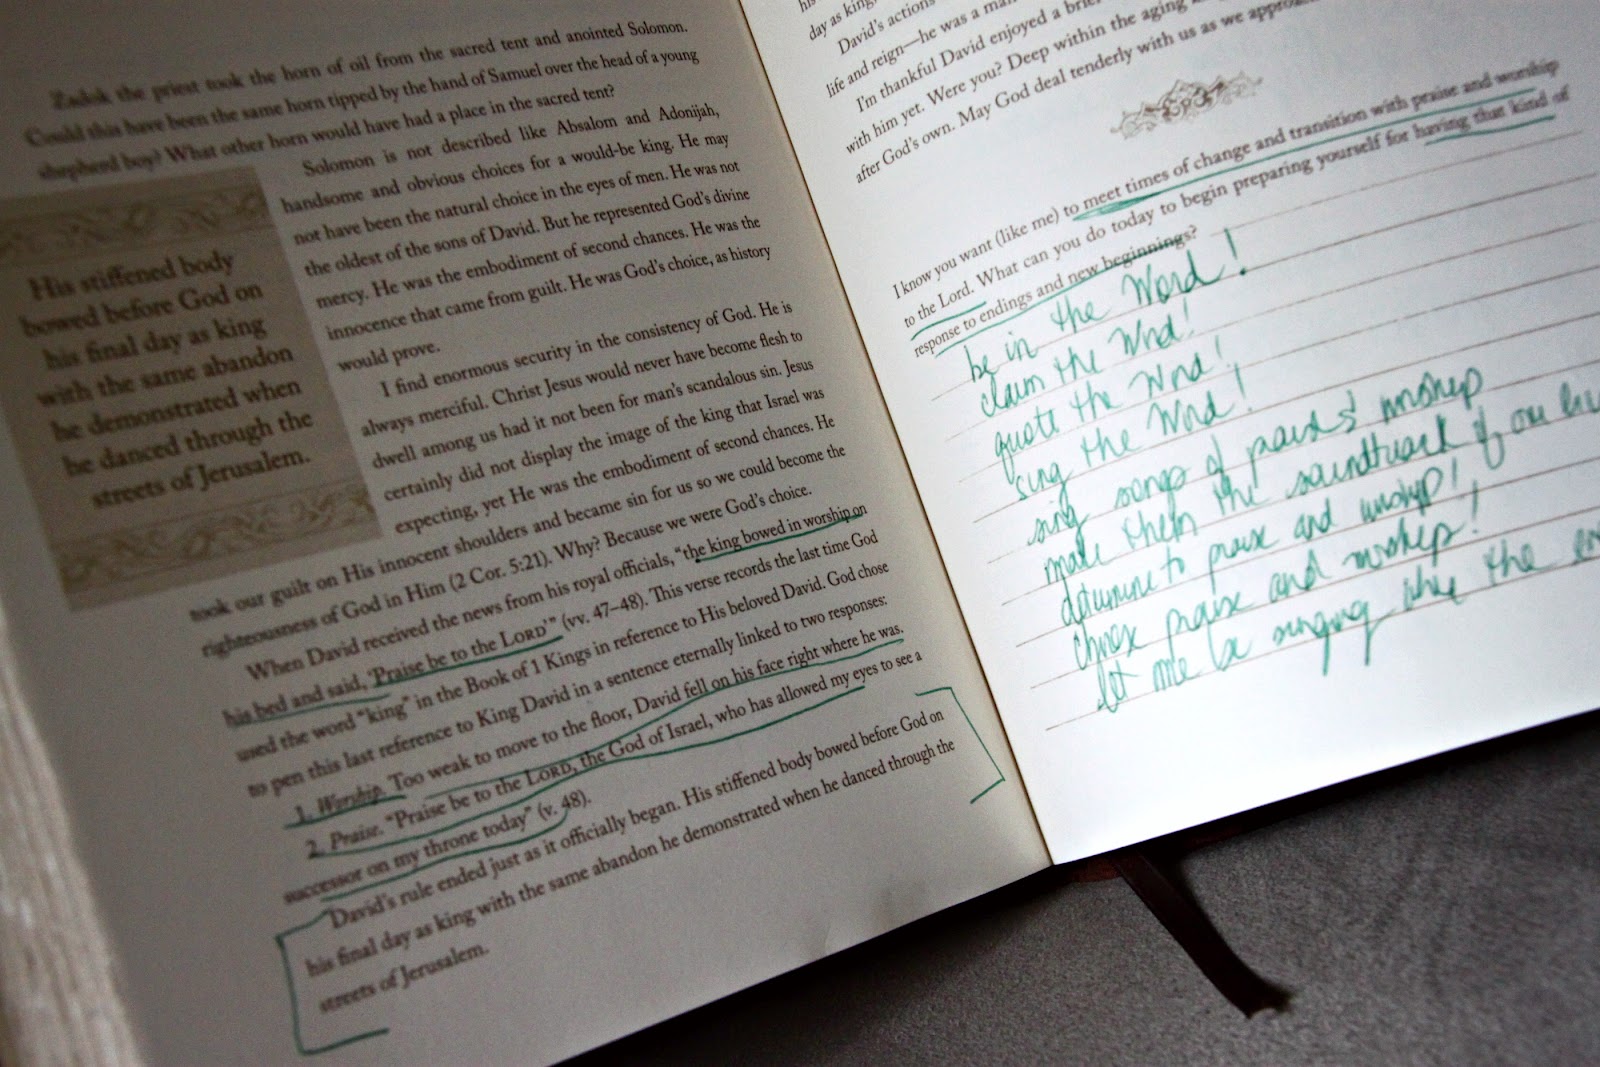 Zadok the priest took the horn of oil from the sacred tent and anointed Solomon.
Could this have been the same horn tipped by the hand of Samuel over the head of a young
shepherd boy? What other horn would have had a place in the sacred tent?
Solomon is not described like Absalom and Adonijah,
handsome and obvious choices for a would-be king. He may
not have been the natural choice in the eyes of men. He was not
the oldest of the sons of David. But he represented God's divine
mercy. He was the embodiment of second chances. He was the
innocence that came from guilt. He was God's choice, as history
would prove.
His stiffened body
bowed before God on
his final day as king
with the same abandon
he demonstrated when
he danced through the
streets of Jerusalem.
I find enormous security in the consistency of God. He is
always merciful. Christ Jesus would never have become flesh to
dwell among us had it not been for man's scandalous sin. Jesus
certainly did not display the image of the king that Israel was
expecting, yet He was the embodiment of second chances. He
took our guilt on His innocent shoulders and became sin for us so we could become the
righteousness of God in Him (2 Cor. 5:21). Why? Because we were God's choice.
When David received the news from his royal officials, "the king bowed in worship on
his bed and said, 'Praise be to the LORD'" (vv. 47–48). This verse records the last time God
used the word "king" in the Book of 1 Kings in reference to His beloved David. God chose
to pen this last reference to King David in a sentence eternally linked to two responses:
1. Worship. Too weak to move to the floor, David fell on his face right where he was.
2. Praise. "Praise be to the LORD, the God of Israel, who has allowed my eyes to see a
successor on my throne today" (v. 48).
David's rule ended just as it officially began. His stiffened body bowed before God on
his final day as king with the same abandon he demonstrated when he danced through the
streets of Jerusalem.
his
day as king,
David's actions
life and reign—he was a man
I'm thankful David enjoyed a brief
with him yet. Were you? Deep within the aging
after God's own. May God deal tenderly with us as we approach
I know you want (like me) to meet times of change and transition with praise and worship
to the Lord. What can you do today to begin preparing yourself for having that kind of
response to endings and new beginnings?
be in the Word!
claim the Word!
quote the Word!
sing the Word!
sing songs of praise & worship
make them the soundtrack of our
determine to praise and worship!
choose praise and worship!
let me be singing when the